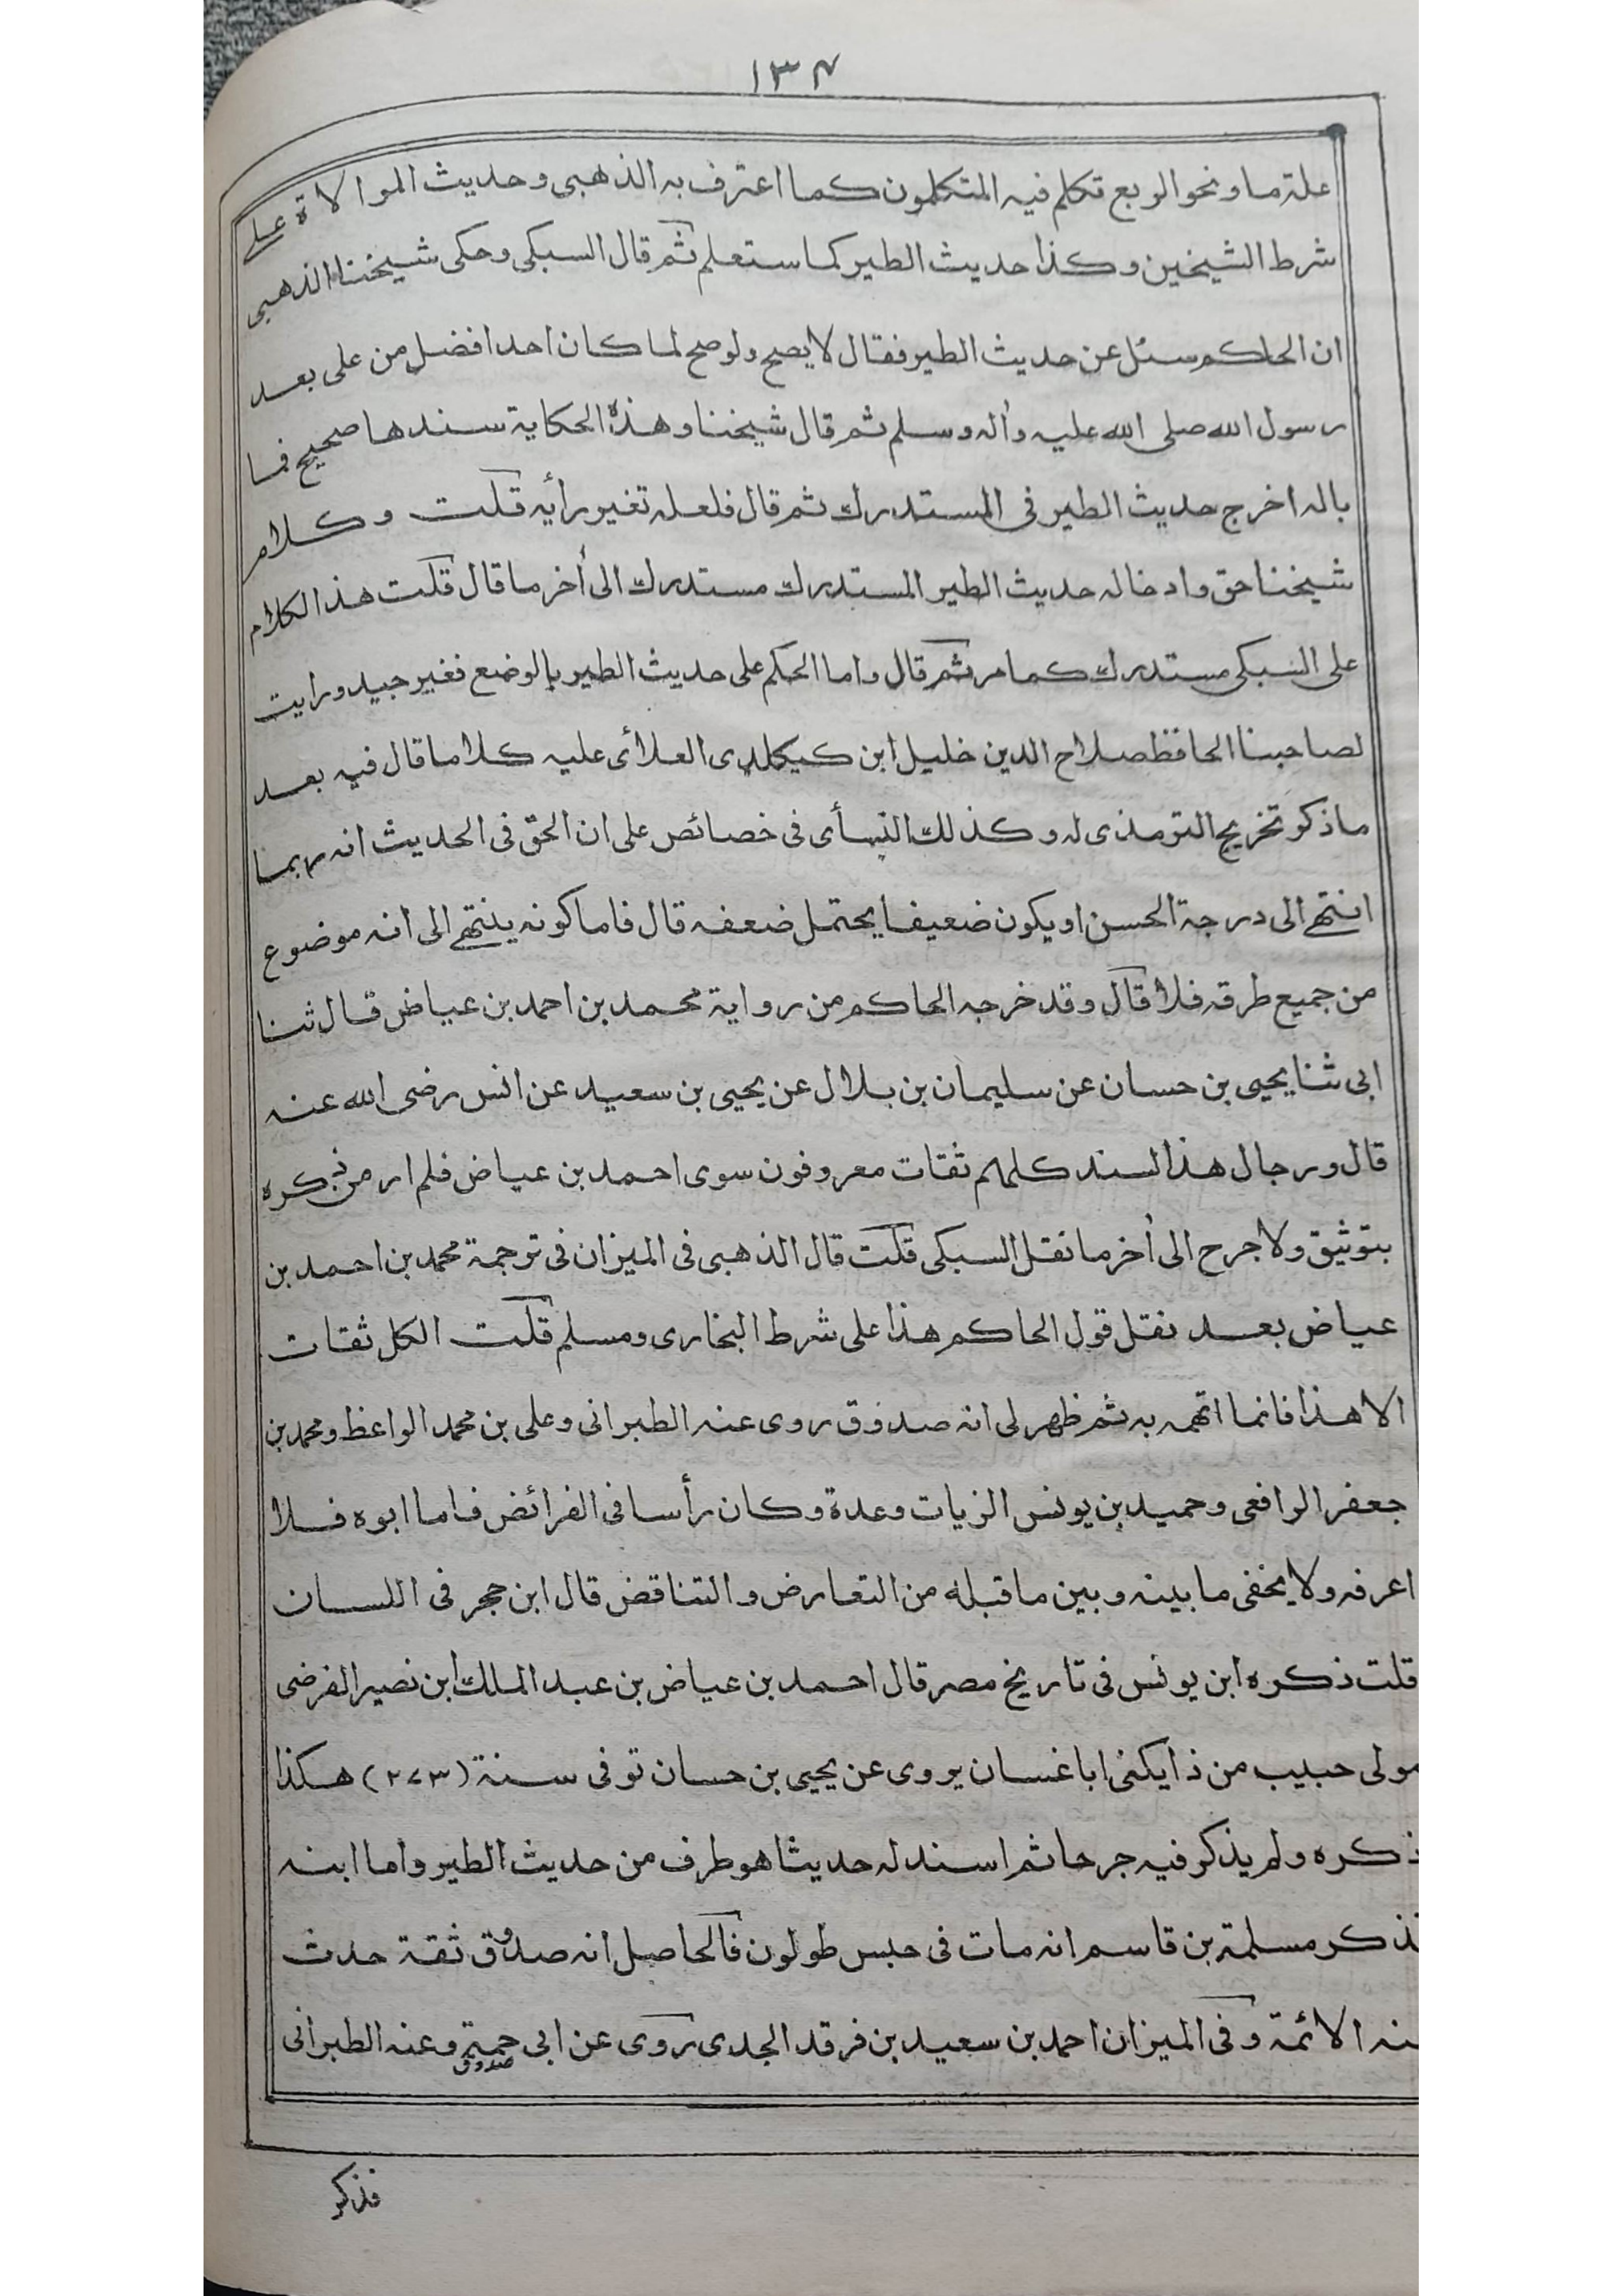 ١٣٤
علة ما ونحو الربع تكلم فيه المتكلمون كما اعترف به الذهبى وحديث الموالاة على
شرط الشيخين وكذا حديث الطير كما ستعلم ثم قال السبكى وحكى شيخنا الذهبى
ان الحاكم سئل عن حديث الطير فقال لا يصح ولو صح لما كان احد افضل من على بعد
رسول الله صلى الله عليه وأله وسلم ثم قال شيخنا وهذه الحكاية سندها صحيح فما
باله اخرج حديث الطير فى المستدرك ثم قال فلعله تغير رأيه قلت وكلام
شيخنا حق وادخاله حديث الطير المستدرك مستدرك الى أخر ما قال قلت هذا الكلام
على السبكى مستدرك كما مر ثم قال واما الحكم على حديث الطير بالوضع فغير جيد ورايت
لصاحبنا الحافظ صلاح الدين خليل ابن كيكلدى العلائى عليه كلاما قال فيه بعد
ما ذكر تخريج الترمذى له وكذلك النسأى فى خصائص على ان الحق فى الحديث انه ربما
انتهى الى درجة الحسن او يكون ضعيفا يحتمل ضعفه قال فاما كونه ينتهى الى انه موضوع
من جميع طرقه فلا قال وقد خرجه الحاكم من رواية محمد بن احمد بن عياض قال ثنا
ابى ثنا يحيى بن حسان عن سليمان بن بلال عن يحيى بن سعيد عن انس رضى الله عنه
قال ورجال هذا السند كلهم ثقات معروفون سوى احمد بن عياض فلم ار من ذكره
بتوثيق ولا جرح الى أخر ما نقل السبكى قلت قال الذهبى فى الميزان فى ترجمة محمد بن احمد بن
عياض بعد نقل قول الحاكم هذا على شرط البخارى ومسلم قلت الكل ثقات
الا هذا فانما اتهمه به ثم ظهر لى انه صدوق روى عنه الطبرانى وعلى بن محمد الواعظ ومحمد بن
جعفر الرافعى وحميد بن يونس الزيات وعدة وكان رأسا فى الفرائض فاما ابوه فلا
اعرفه ولا يخفى ما بينه وبين ما قبله من التعارض والتناقض قال ابن حجر فى اللسان
قلت ذكره ابن يونس فى تاريخ مصر قال احمد بن عياض بن عبد الملك ابن نصير الفرضى
مولى حبيب من ذا يكنى ابا غسان يروى عن يحيى بن حسان توفى سنة (٢٧٣) هكذا
ذكره ولم يذكر فيه جرحا ثم اسند له حديثا هو طرف من حديث الطير واما ابنه
فذكر مسلمة بن قاسم انه مات فى حبس طولون فالحاصل انه صدوق ثقة حدث
عنه الائمة وفى الميزان احمد بن سعيد بن فرقد الجدى روى عن ابى حمة وعنه الطبرانى
صدوق
فذكر